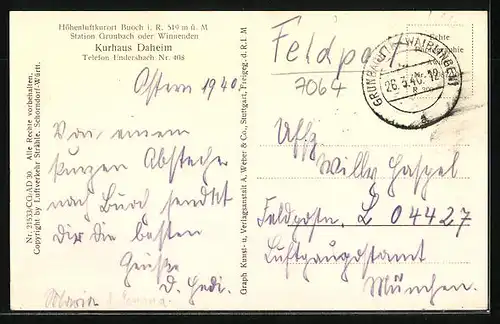 Höhenluftkurort Buoch i. R. 519 m ü. M
Station Grunbach oder Winnenden
Kurhaus Daheim
Telefon Endersbach Nr. 408
Ostern 1940.
Von einem
kurzen Abstecher
nach Buoch sendet
Dir die besten
Grüße
D. Hedi.
Maria
Nr. 21533/CG/AD 30. Alle Rechte vorbehalten.
Copyright by Luftverkehr Strähle, Schorndorf-Württ.
Graph. Kunst- u. Verlagsanstalt A. Weber & Co., Stuttgart, Freigeg. d. R L M
Feldpost
7064
Echte
GRUNBACH (WAIBLINGEN)
26.3.40. 12
a
Uffz
Willy Haspel
Feldpostn. L 04427
Luftgaupostamt
München.